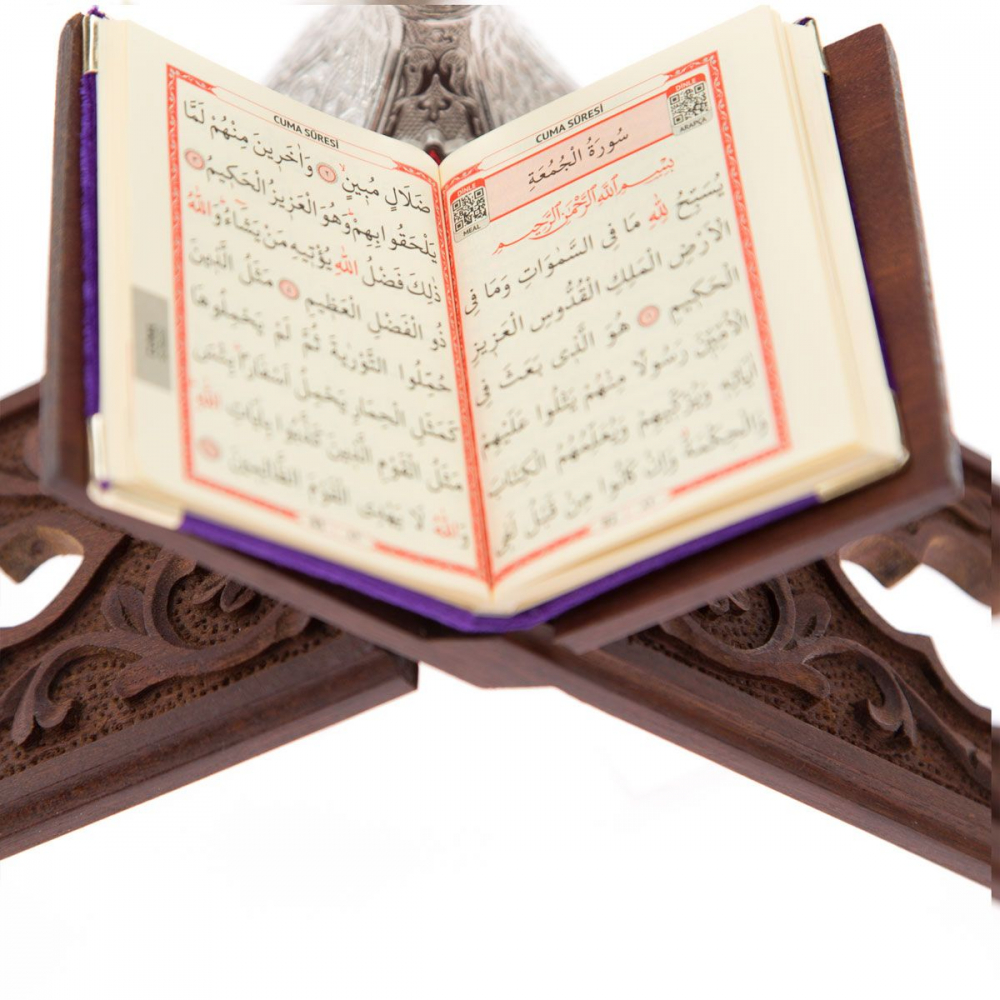 CUMA SÛRESİ
DİNLE
ARAPÇA
سُورَةُ الْجُمُعَةِ
DİNLE
MEAL
بِسْمِ اللّٰهِ الرَّحْمٰنِ الرَّحِيمِ
يُسَبِّحُ لِلّٰهِ مَا فِى السَّمٰوَاتِ وَمَا فِى
الْاَرْضِ الْمَلِكِ الْقُدُّوسِ الْعَزِيزِ
الْحَكِيمِ ﴿١﴾ هُوَ الَّذِى بَعَثَ فِى
الْاُمِّيّنَ رَسُولًا مِنْهُمْ يَتْلُوا عَلَيْهِمْ
اٰيَاتِهِ وَيُزَكِّيهِمْ وَيُعَلِّمُهُمُ الْكِتَابَ
وَالْحِكْمَةَ وَاِنْ كَانُوا مِنْ قَبْلُ لَفِى
CUMA SÛRESİ
ضَلَالٍ مُبِينٍ ﴿٢﴾ وَاٰخَرِينَ مِنْهُمْ لَمَّا
يَلْحَقُوا بِهِمْ وَهُوَ الْعَزِيزُ الْحَكِيمُ ﴿٣﴾
ذٰلِكَ فَضْلُ اللّٰهِ يُؤْتِيهِ مَنْ يَشَاءُ وَاللّٰهُ
ذُو الْفَضْلِ الْعَظِيمِ ﴿٤﴾ مَثَلُ الَّذِينَ
حُمِّلُوا التَّوْرٰيةَ ثُمَّ لَمْ يَحْمِلُوهَا
كَمَثَلِ الْحِمَارِ يَحْمِلُ اَسْفَارًا بِئْسَ
مَثَلُ الْقَوْمِ الَّذِينَ كَذَّبُوا بِاٰيَاتِ اللّٰهِ
وَاللّٰهُ لَا يَهْدِى الْقَوْمَ الظَّالِمِينَ ﴿٥﴾